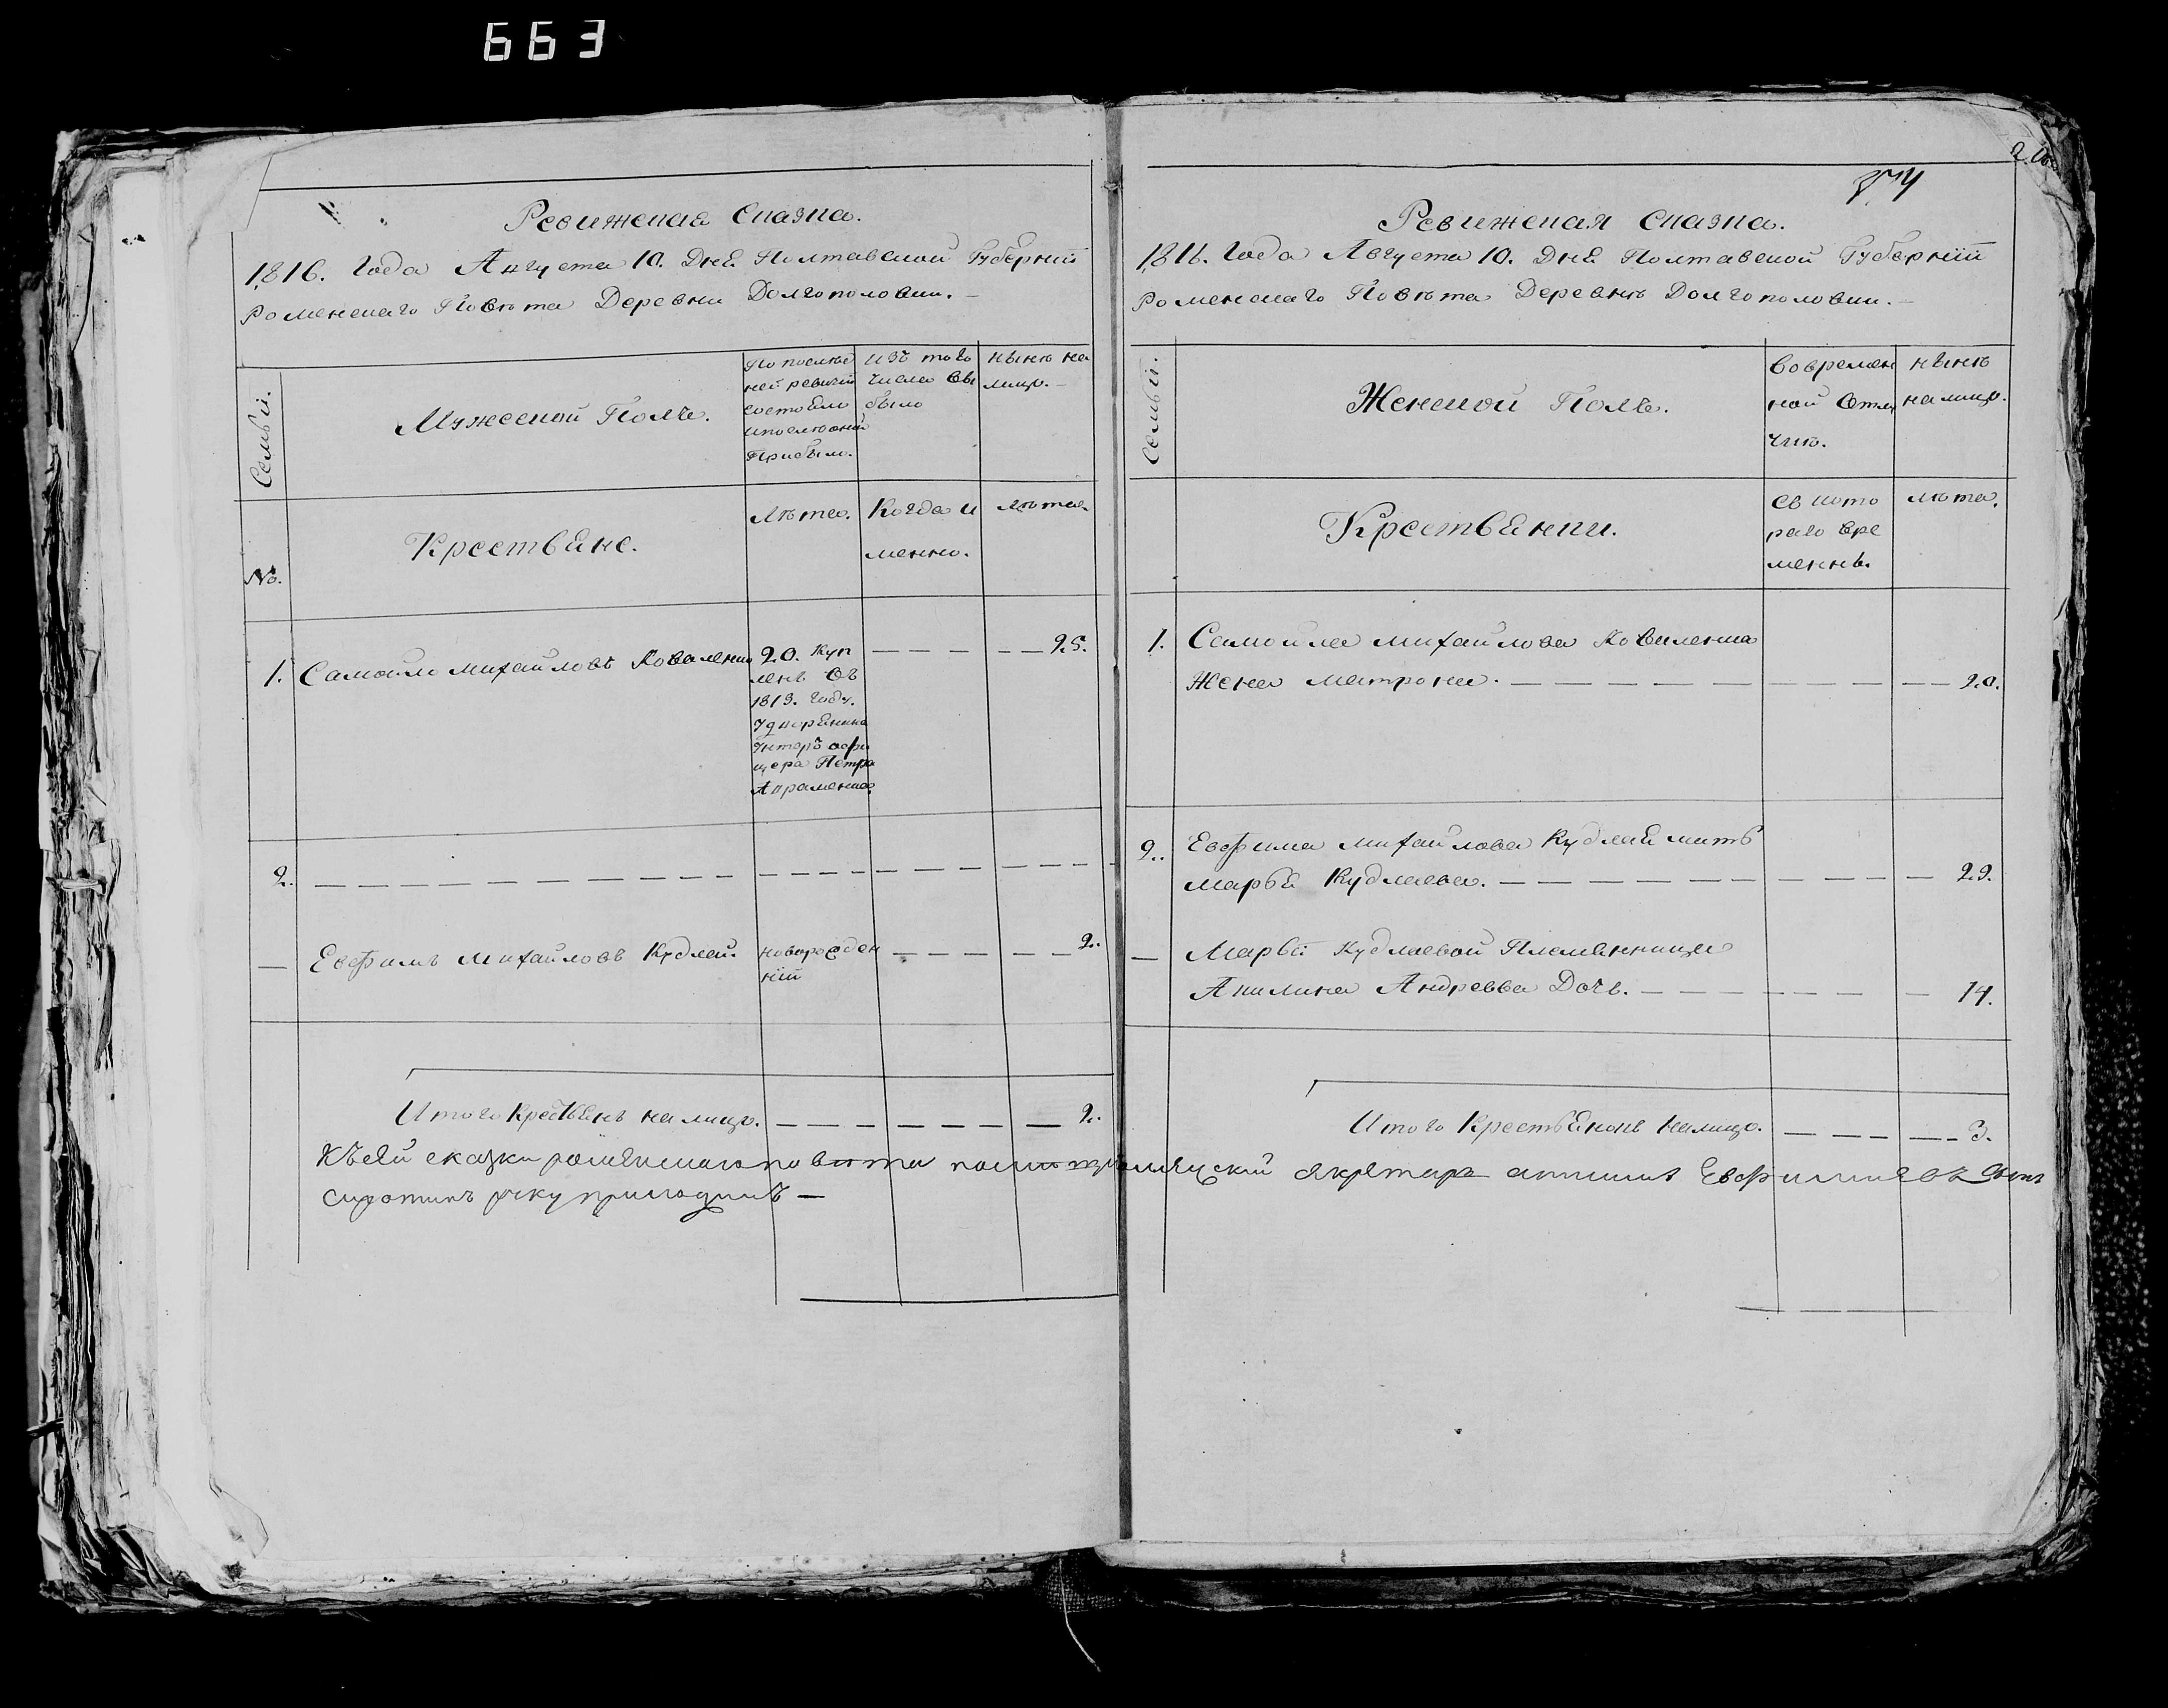 663
Ревижская Сказка.
1816. Года Августа 10. Дня Полтавской Губерніи
Роменскаго Повѣта Деревни Долгополовки.
Семьи.
Мужеской Полъ.
По послѣд
ней ревизіи
состояло
и после оной
Прибыло.
изъ того
числа вы
было
нынѣ на
лицо.
№.
Крестьяне.
Лѣта.
Когда и
менно.
лѣта.
1.
Самойло Михайловъ Коваленко
20. куп
ленъ въ
1813. году.
У дворянина
Унтеръ офи
цера Петра
Авраменка.
25.
2.
Евфимъ Михайловъ Кудлай.
новорожден
ній
2.
Итого Крестьянъ на лицо.
2.
Къ сей сказки роменскаго повета
Сиротинъ руку приложилъ
2
Ревижская Сказка.
1816. Года Августа 10. Дня Полтавской Губерніи
Роменскаго Повѣта Деревнѣ Долгополовки.
Семьи.
Женской Полъ.
Во времен
ной Отлу
чкѣ.
нынѣ
на лицо.
Крестьянки.
съ кото
раго вре
менны.
лѣта.
1.
Самойла Михайлова Коваленка
Жена Матрона.
20.
2.
Евфима Михайлова Кудлая мать
Марья Кудлаева.
29.
Марьи Кудлаевой Племянница
Акилина Андреева Дочь.
14.
Итого Крестьянокъ налицо.
3.
сынъ